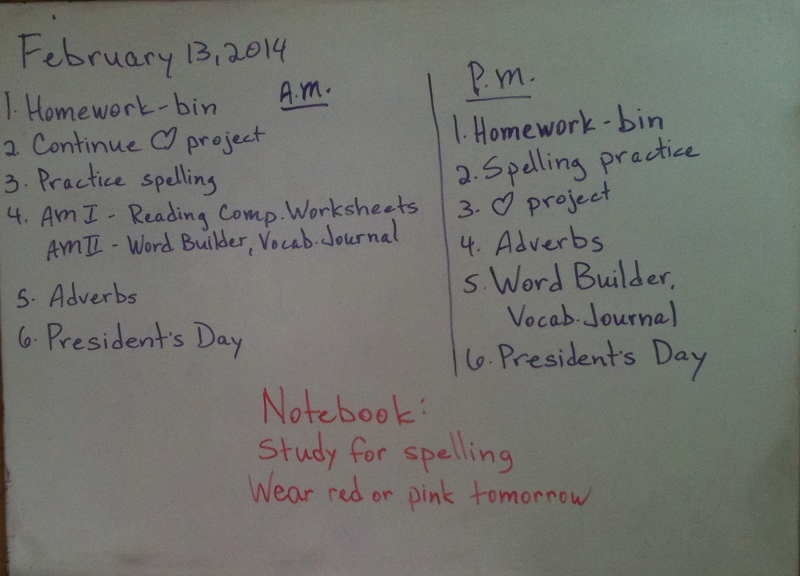 February 13, 2014
A.M.
1. Homework-bin
2 Continue ♡ project
3. Practice spelling
4. AM I - Reading Comp. Worksheets
AM II - Word Builder, Vocab. Journal
5. Adverbs
6. President's Day
P.m.
1. Homework-bin
2. Spelling practice
3. ♡ project
4. Adverbs
5. Word Builder,
Vocab. Journal
6. President's Day
Notebook:
Study for spelling
Wear red or pink tomorrow